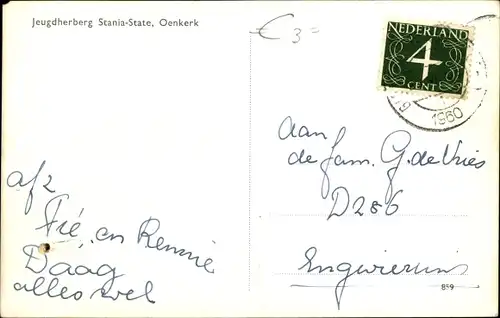 Jeugdherberg Stania-State, Oenkerk
€ 3=
NEDERLAND
4
CENT
1960
Aan
de fam. G. de Vries
D286
Engwierum
afz
Fié, en Rennie
Daag
alles wel
859